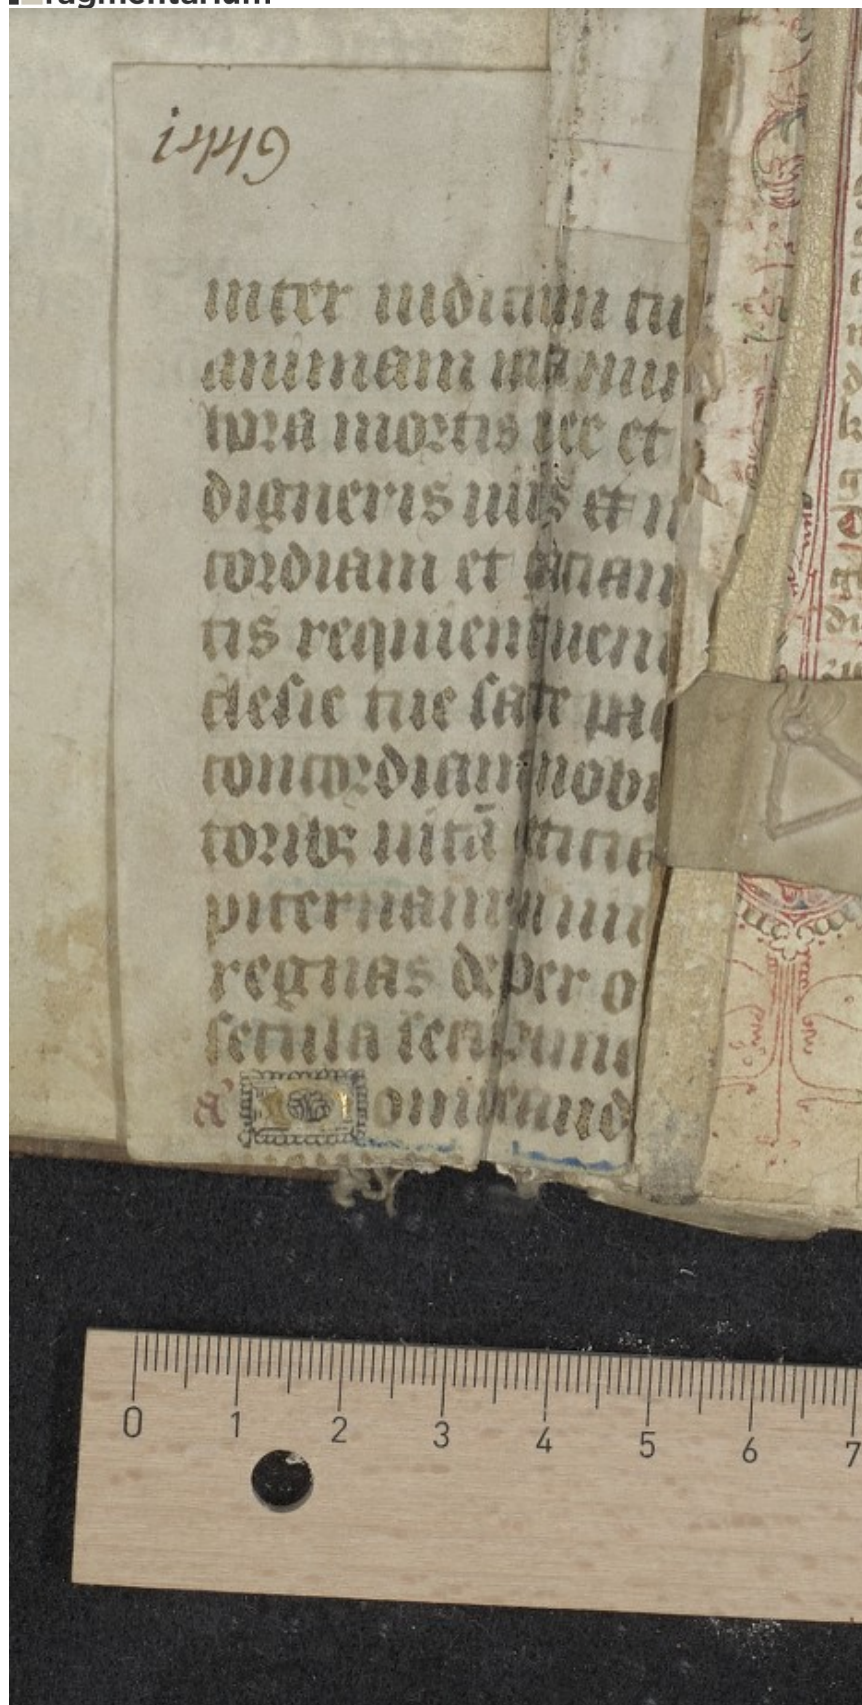 fragmentarium
1449
inter iudicium tu
animam mea nun
hora mortis nee et
digneris uiis et
cordiam et gratiam
tis requiem ueni
clesie tue sate pac
concordiam nobi
toribꝫ uitā et
piternam
regnas deus per o
secula seculorum
a' omine
0 1 2 3 4 5 6 7